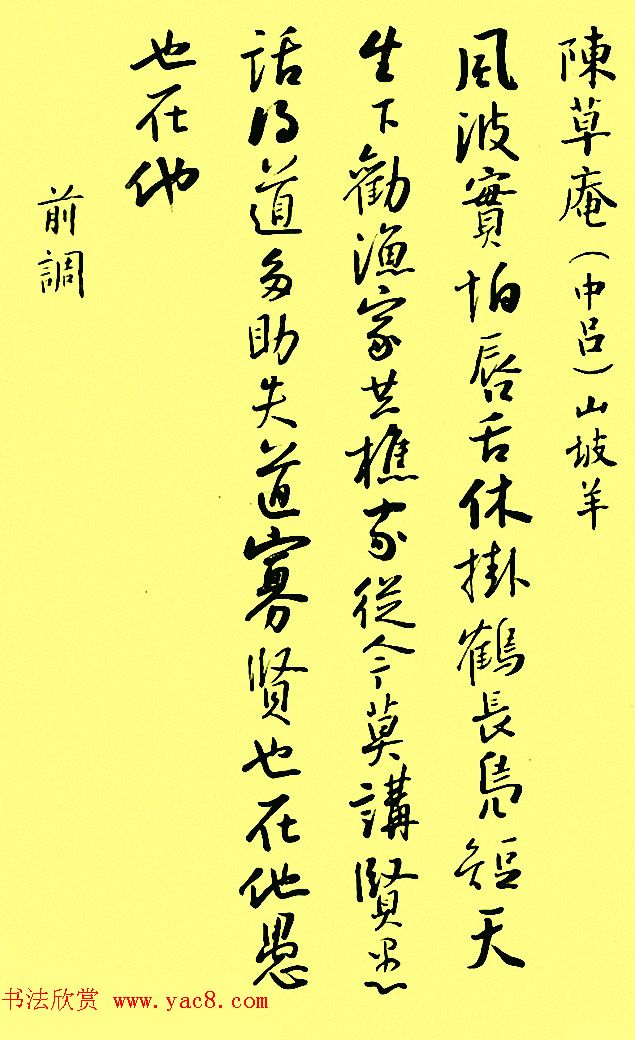 陳草庵（中吕）山坡羊
風波實怕唇舌休掛鶴長鳧短天
生下勸渔家共樵家從今莫講賢愚
話得道多助失道寡贤也在他愚
也在他
前調
书法欣赏 www.yac8.com